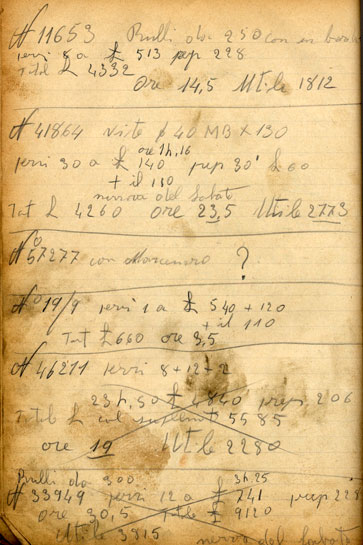 N 11653 Rulli da 250 con in
pezzi 8 a £ 513 prep 228
Total £ 4332
Ore 14,5 Utile 1812
N 41864 Viti ϕ 40 MB x 130
ore 1h,16
pezzi 30 a £ 140 prep 30' £ 60
+ il 130
del Sabato
Tot £ 4260 Ore 23,5 Utile 2773
N° 57277 con ?
N° 19/9 pezzi 1 a £ 540 + 120
+ il 110
Tot £ 660 Ore 3,5
N 46211 pezzi 8+12+2
23h,50 £ 4840 prep 206
Total £ col 5585
Ore 19 Utile 2280
Rulli da 300 3h 25
N 33949 pezzi 12 a £ 741 prep 228
Ore 30,5 Totale £ 9120
Utile 3815 del Sabato